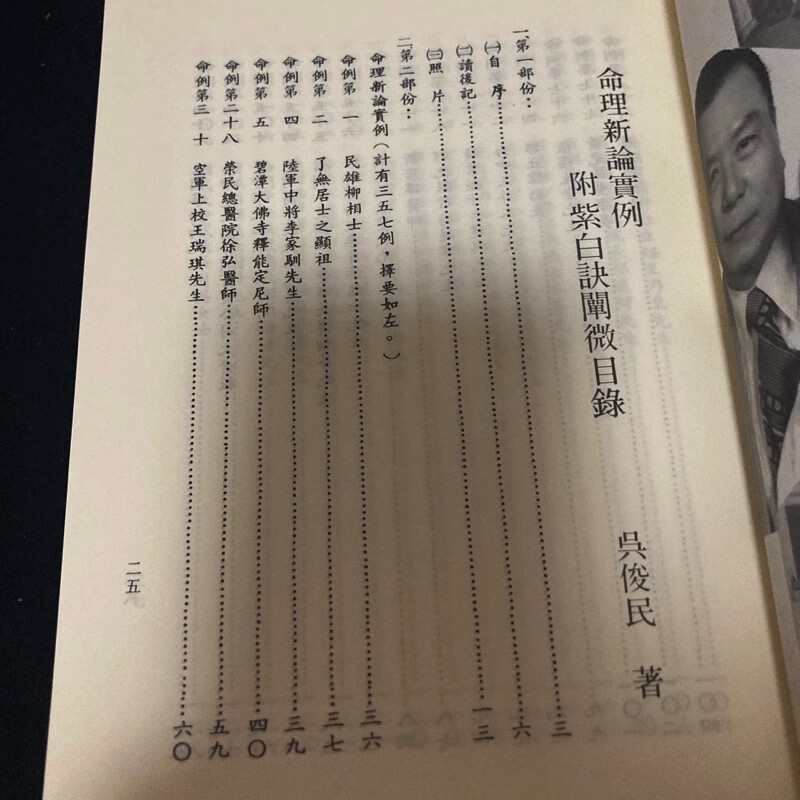 命理新論實例
附紫白訣闡微目錄
吳俊民 著
一、第一部份：
㈠自 序……………………三
㈡讀後記……………………六
㈢照 片……………………一三
二、第二部份：
命理新論實例（計有三五七例，擇要如左。）
命例第 一 民雄柳相士……………………三六
命例第 二 了無居士之顯祖……………………三七
命例第 四 陸軍中將李家馴先生……………………三九
命例第 五 碧潭大佛寺釋能定尼師……………………四〇
命例第二十八 榮民總醫院徐弘醫師……………………五九
命例第三 十 空軍上校王瑞琪先生……………………六〇
二五